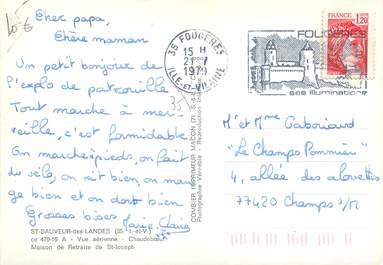 Cher papa,
Chère maman
Un petit bonjour de
l'explo de patrouille.
Tout marche à mer-
veille, c'est formidable.
On marche à pieds, on fait
du vélo, on rit bien, on man-
ge bien et on dort bien.
Grosses bises Marie-Claire
ST-SAUVEUR-des-LANDES (35. I.-et-V.)
479-15 A - Vue aérienne - Chaudebœuf
Maison de Retraite de St-Joseph
COMBIER IMPRIMEUR MACON
Photographie Véritable - Reproduction
35 FOUGERES
15 H
1979
ILLE-et-VILAINE
FOUGERES
ses illuminations
FRANCE
1,20
M et Mme Gaboriaud
"Le Champs Pommier"
4, allée des alouettes
77420 Champs s/M